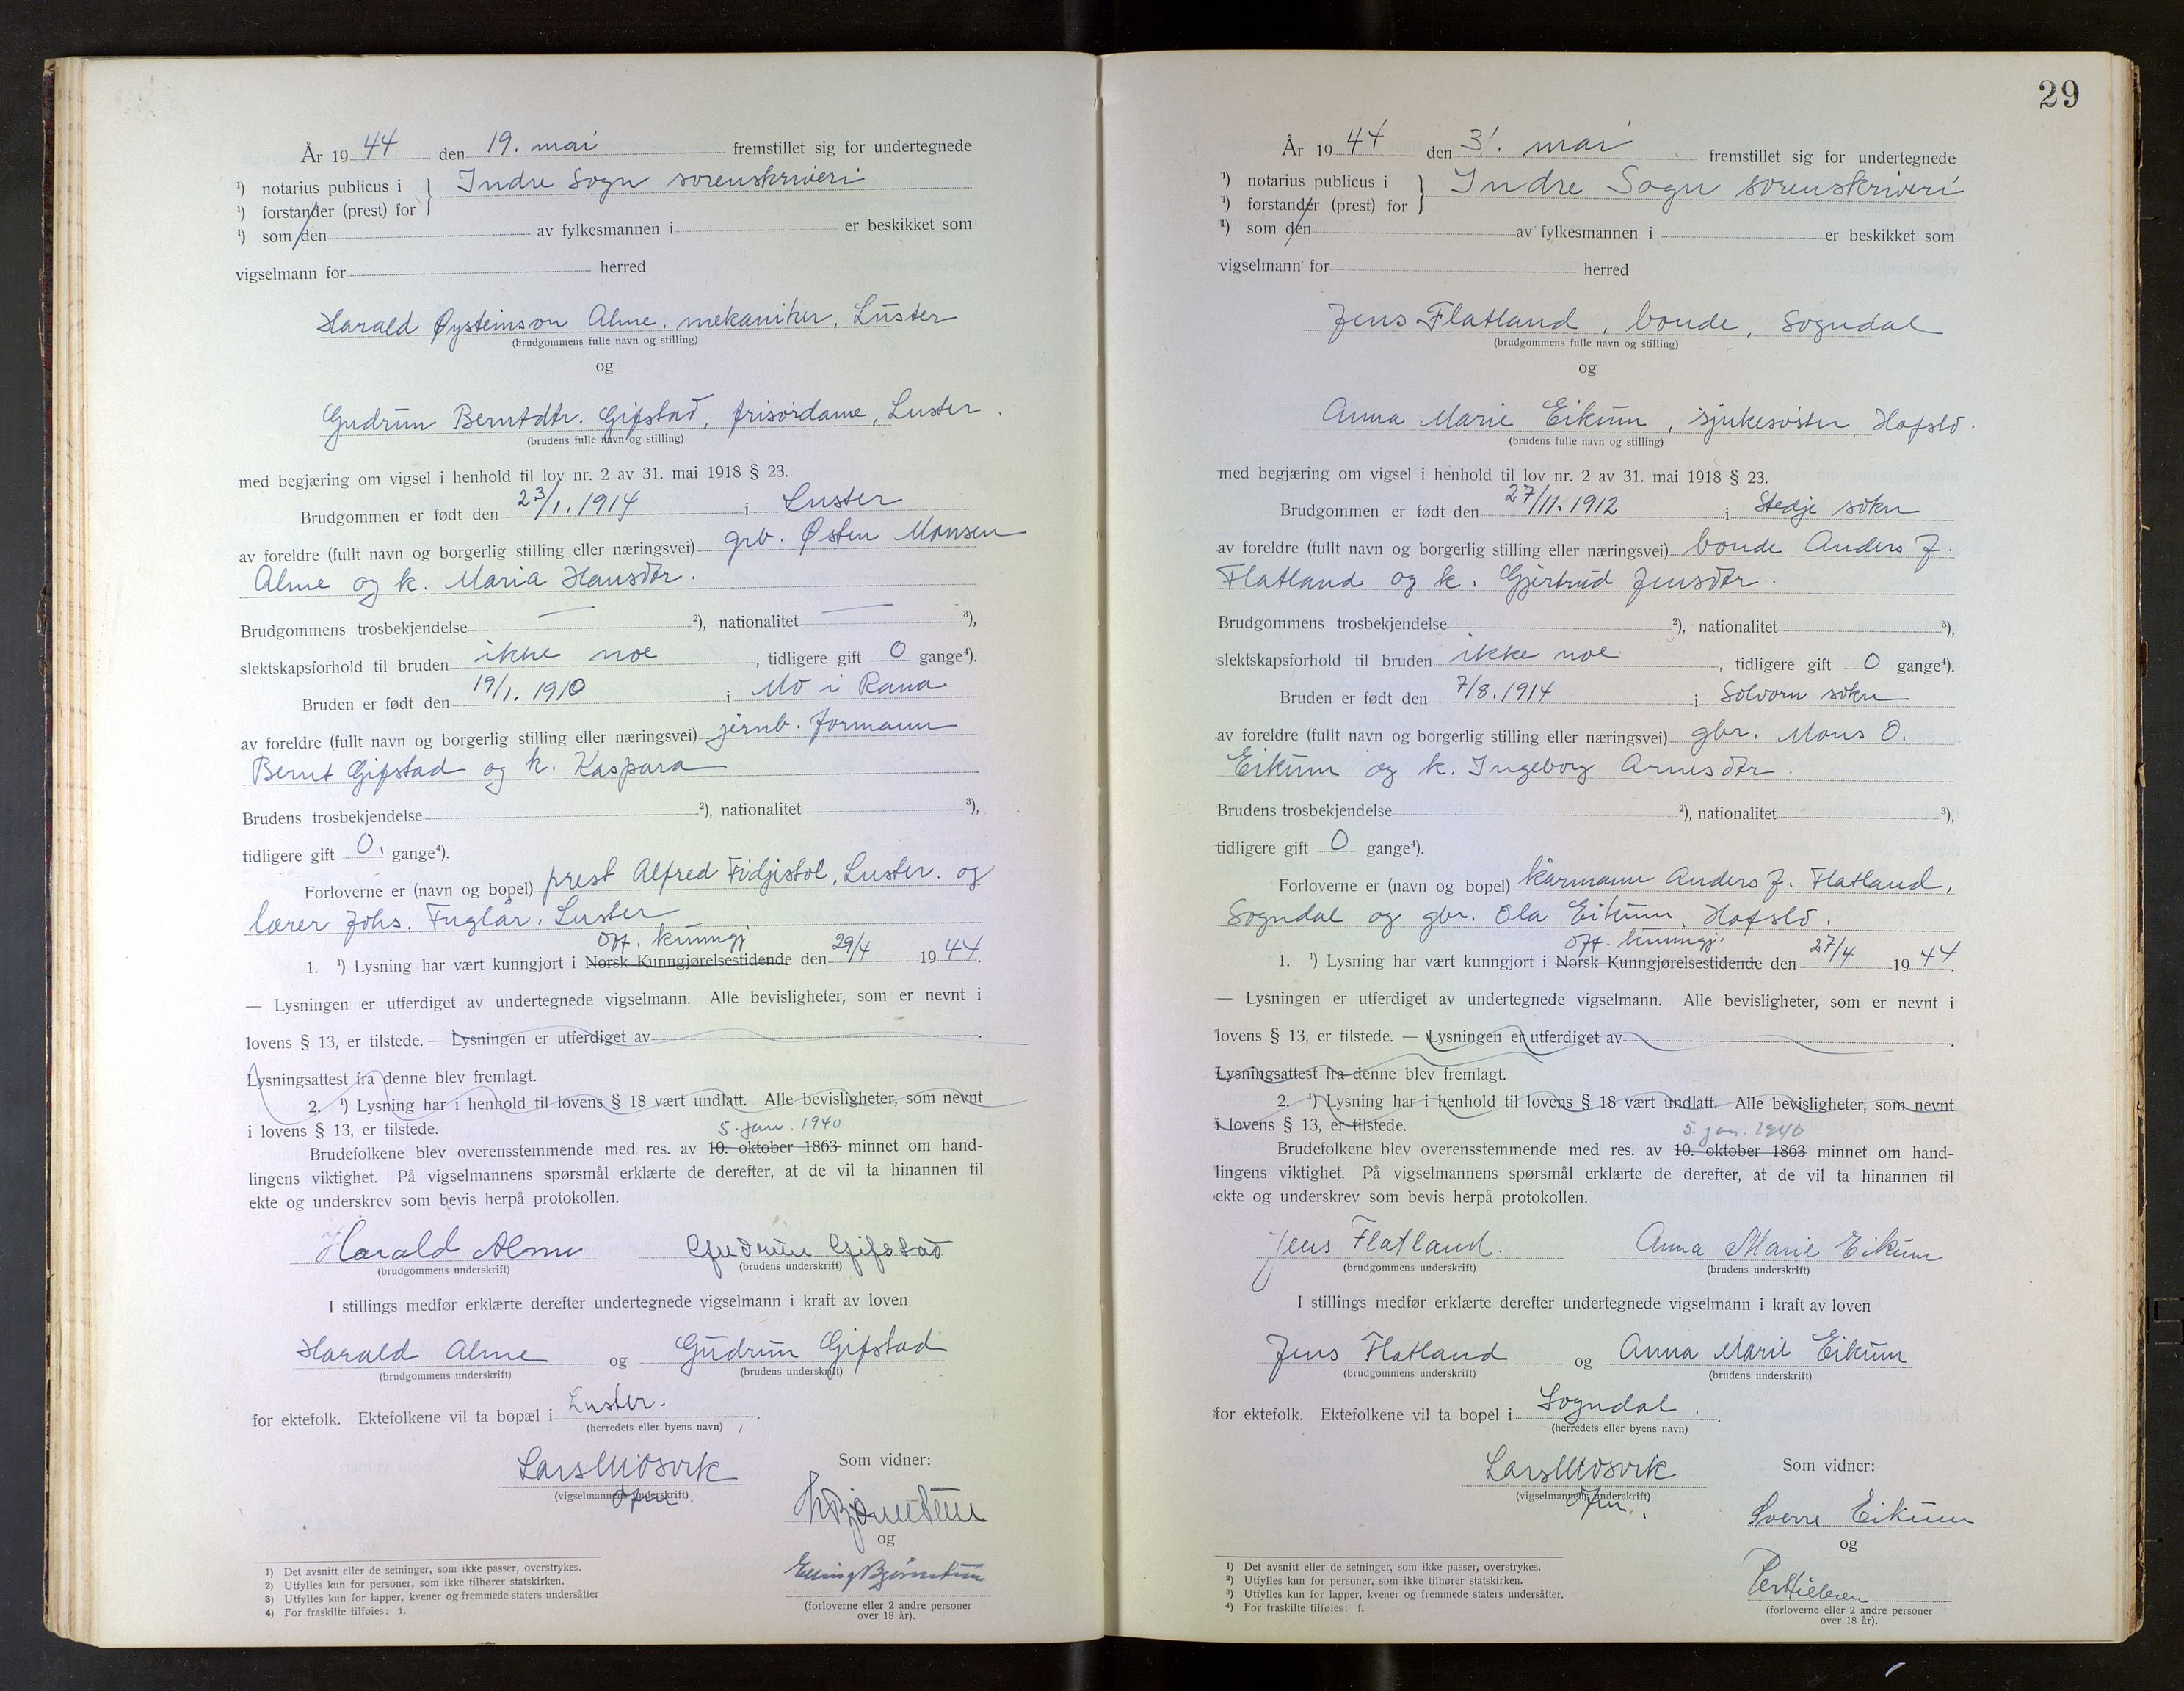 År 1944 den 19. mai fremstillet sig for undertegnede
¹) notarius publicus i } Indre Sogn sorenskriveri
¹) forstander (prest) for
¹) som den av fylkesmannen i er beskikket som
vigselmann for herred
Harald Øysteinson Alme, mekaniker, Luster
(brudgommens fulle navn og stilling)
og
Gudrun Berntdtr. Gifstad, frisørdame, Luster.
(brudens fulle navn og stilling)
med begjæring om vigsel i henhold til lov nr. 2 av 31. mai 1918 § 23.
Brudgommen er født den 23/1. 1914 i Luster
av foreldre (fullt navn og borgerlig stilling eller næringsvei) grb. Østen Monsen
Alme og k. Maria Hansdtr.
Brudgommens trosbekjendelse — ²), nationalitet — ³),
slektskapsforhold til bruden ikke noe, tidligere gift 0 gange⁴).
Bruden er født den 19/1. 1910 i Mo i Rana
av foreldre (fullt navn og borgerlig stilling eller næringsvei) jernb. formann
Bernt Gifstad og k. Kaspara
Brudens trosbekjendelse ²), nationalitet ³),
tidligere gift 0. gange⁴).
Forloverne er (navn og bopel) prest Alfred Fidjistøl, Luster. og
lærer Johs. Fuglår. Luster
off. kunngj
1. ¹) Lysning har vært kunngjort i Norsk Kunngjørelsestidende den 29/4 1944.
— Lysningen er utferdiget av undertegnede vigselmann. Alle bevisligheter, som er nevnt i
lovens § 13, er tilstede. — Lysningen er utferdiget av .
Lysningsattest fra denne blev fremlagt.
2. ¹) Lysning har i henhold til lovens § 18 vært undlatt. Alle bevisligheter, som nevnt
i lovens § 13, er tilstede.
5. jan. 1940
Brudefolkene blev overensstemmende med res. av 10. oktober 1863 minnet om hand-
lingens viktighet. På vigselmannens spørsmål erklærte de derefter, at de vil ta hinannen til
ekte og underskrev som bevis herpå protokollen.
Harald Alme Gudrun Gifstad
(brudgommens underskrift) (brudens underskrift)
I stillings medfør erklærte derefter undertegnede vigselmann i kraft av loven
Harald Alme og Gudrun Gifstad
(brudgommens underskrift) (brudens underskrift)
for ektefolk. Ektefolkene vil ta bopæl i Luster.
(herredets eller byens navn)
Som vidner:
Lars Mosvik
(vigselmannens underskrift)
og
Elling Bjørnetun
(forloverne eller 2 andre personer
over 18 år).
1) Det avsnitt eller de setninger, som ikke passer, overstrykes.
2) Utfylles kun for personer, som ikke tilhører statskirken.
3) Utfylles kun for lapper, kvener og fremmede staters undersåtter
4) For fraskilte tilføies: f.
29
År 1944 den 31. mai fremstillet sig for undertegnede
¹) notarius publicus i } Indre Sogn sorenskriveri
¹) forstander (prest) for
¹) som den av fylkesmannen i er beskikket som
vigselmann for herred
Jens Flatland, bonde, Sogndal
(brudgommens fulle navn og stilling)
og
Anna Marie Eikum, sjukesøster, Hafslo.
(brudens fulle navn og stilling)
med begjæring om vigsel i henhold til lov nr. 2 av 31. mai 1918 § 23.
Brudgommen er født den 27/11. 1912 i Stedje sokn
av foreldre (fullt navn og borgerlig stilling eller næringsvei) bonde Anders J.
Flatland og k. Gjertrud Jensdtr.
Brudgommens trosbekjendelse ²), nationalitet ³),
slektskapsforhold til bruden ikke noe, tidligere gift 0 gange⁴).
Bruden er født den 7/8. 1914 i Solvorn sokn
av foreldre (fullt navn og borgerlig stilling eller næringsvei) gbr. Mons O.
Eikum og k. Ingeborg Arnesdtr.
Brudens trosbekjendelse ²), nationalitet ³),
tidligere gift 0 gange⁴).
Forloverne er (navn og bopel) kårmann Anders J. Flatland,
Sogndal og gbr. Ola Eikum, Hafslo.
off. kunngj.
1. ¹) Lysning har vært kunngjort i Norsk Kunngjørelsestidende den 27/4 1944.
— Lysningen er utferdiget av undertegnede vigselmann. Alle bevisligheter, som er nevnt i
lovens § 13, er tilstede. — Lysningen er utferdiget av .
Lysningsattest fra denne blev fremlagt.
2. ¹) Lysning har i henhold til lovens § 18 vært undlatt. Alle bevisligheter, som nevnt
i lovens § 13, er tilstede.
5. jan. 1940
Brudefolkene blev overensstemmende med res. av 10. oktober 1863 minnet om hand-
lingens viktighet. På vigselmannens spørsmål erklærte de derefter, at de vil ta hinannen til
ekte og underskrev som bevis herpå protokollen.
Jens Flatland. Anna Marie Eikum
(brudgommens underskrift) (brudens underskrift)
I stillings medfør erklærte derefter undertegnede vigselmann i kraft av loven
Jens Flatland og Anna Marie Eikum
(brudgommens underskrift) (brudens underskrift)
for ektefolk. Ektefolkene vil ta bopel i Sogndal.
(herredets eller byens navn)
Som vidner:
Lars Mosvik
(vigselmannens underskrift)
Sverre Eikum
og
(forloverne eller 2 andre personer
over 18 år).
1) Det avsnitt eller de setninger, som ikke passer, overstrykes.
2) Utfylles kun for personer, som ikke tilhører statskirken.
3) Utfylles kun for lapper, kvener og fremmede staters undersåtter.
4) For fraskilte tilføies: f.